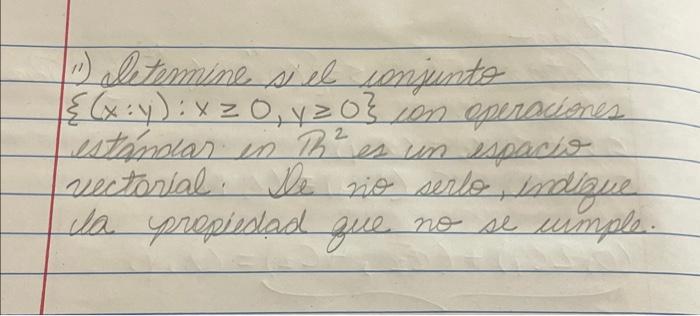 11) Determine si el conjunto
{(x:y) : x ≥ 0, y ≥ 0} con operaciones
estándar en R² es un espacio
vectorial. De no serlo, indique
la propiedad que no se cumple.